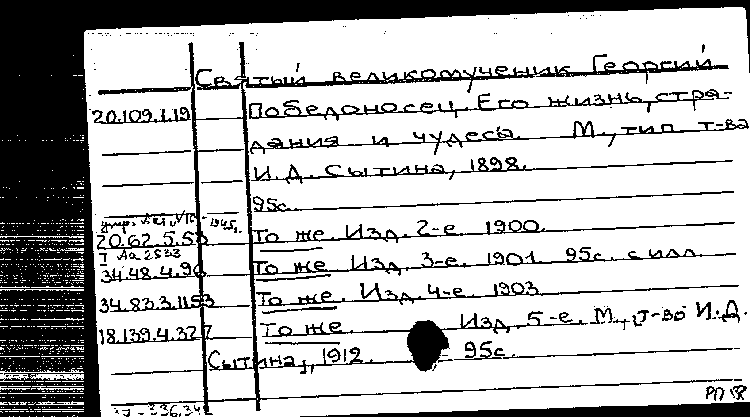 Святый великомученик Георгий
20.109.1.19 Победоносец. Его жизнь, стра-
дания и чудеса. М., тип. т-ва
И.Д. Сытина, 1898.
95с.
20.62.5.58 То же. Изд. 2-е. 1900.
34.48.4.96 То же. Изд. 3-е. 1901. 95с. с илл.
34.83.3.1153 То же. Изд. 4-е. 1903.
18.139.4.327 То же. Изд. 5-е. М., т-во И.Д.
Сытина, 1912. 95с.
37-336,341